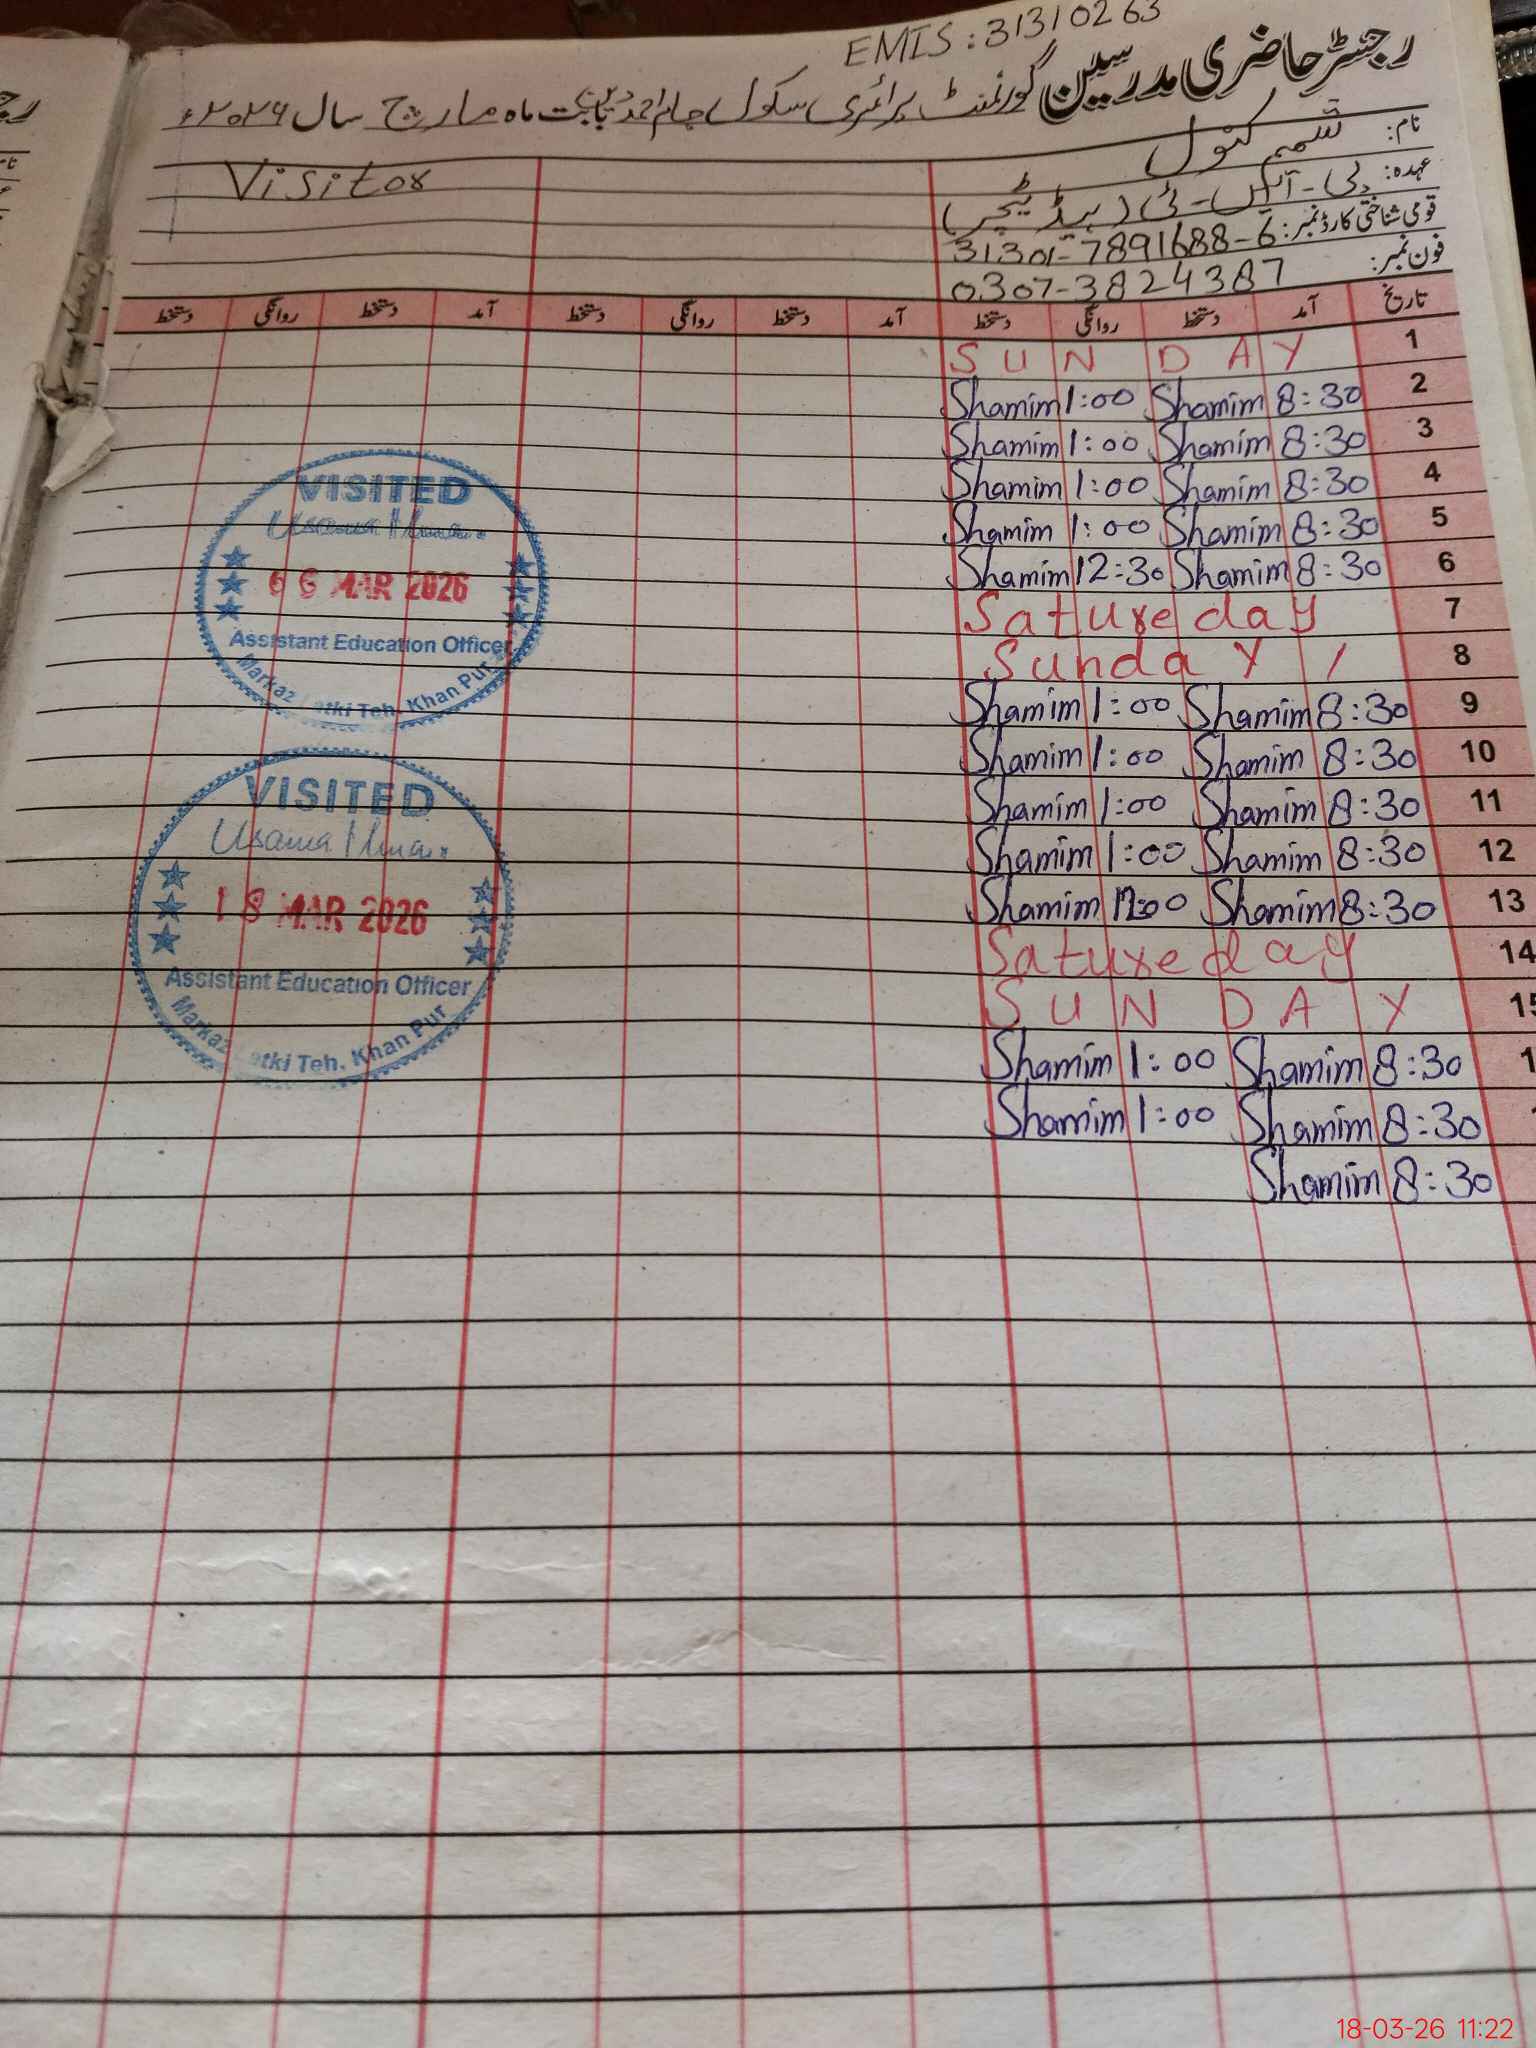 EMIS: 31310263
رجسٹر حاضری مدرسین گورنمنٹ پرائمری سکول جام احمد دین بابت ماہ مارچ سال ۲۰۲۶ء
نام: شمیم کنول
Visitor
عہدہ: پی-ایس-ٹی (ہیڈ ٹیچر)
قومی شناختی کارڈ نمبر: 31301-7891688-6
فون نمبر: 0307-3824387
تاریخ آمد دستخط روانگی دستخط آمد دستخط روانگی دستخط آمد دستخط روانگی دستخط
SUNDAY 1
Shamim 1:00 Shamim 8:30 2
Shamim 1:00 Shamim 8:30 3
Shamim 1:00 Shamim 8:30 4
Shamim 1:00 Shamim 8:30 5
Shamim 12:30 Shamim 8:30 6
Satureday 7
Sunday / 8
Shamim 1:00 Shamim 8:30 9
Shamim 1:00 Shamim 8:30 10
Shamim 1:00 Shamim 8:30 11
Shamim 1:00 Shamim 8:30 12
Shamim Shamim 8:30 13
Satureday 14
SUNDAY 15
Shamim 1:00 Shamim 8:30 1
Shamim 1:00 Shamim 8:30
Shamim 8:30
VISITED
Usama
06 MAR 2026
Assistant Education Officer
Markaz Teh. Khan Pur
VISITED
Usama
18 MAR 2026
Assistant Education Officer
Markaz Teh. Khan Pur
18-03-26 11:22